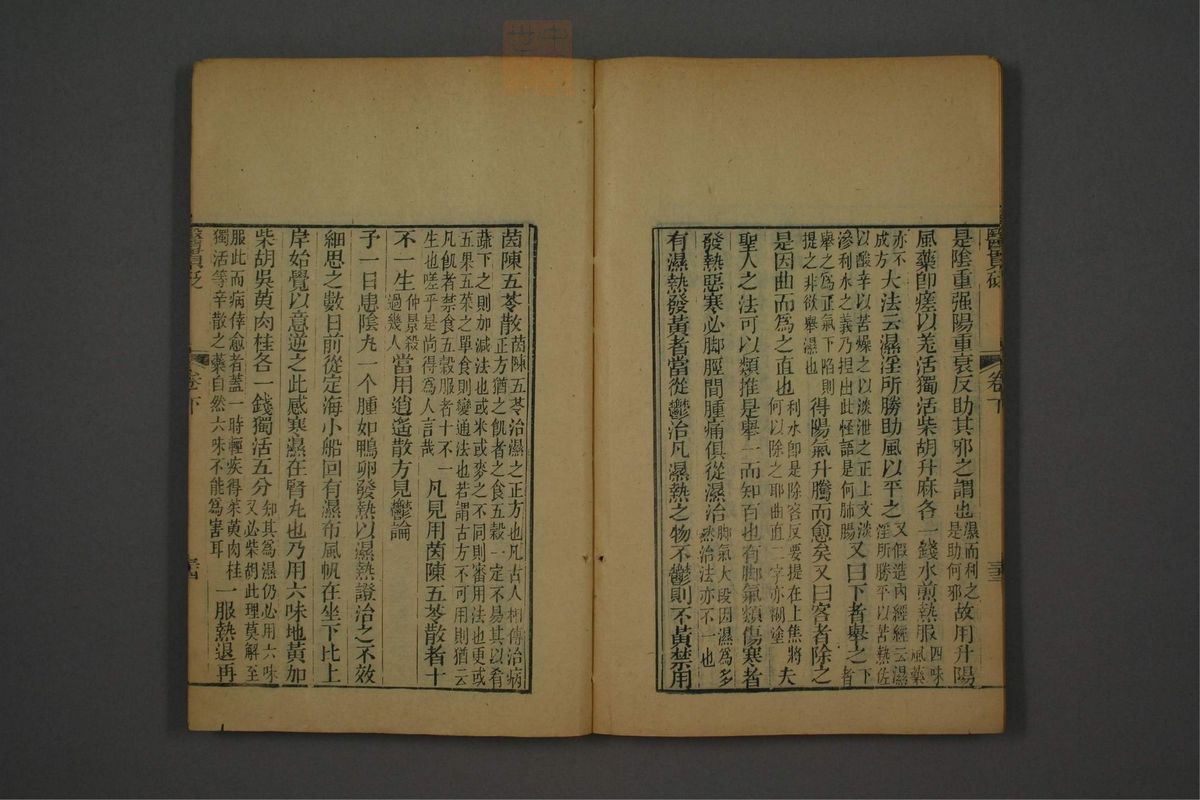 醫貫砭
卷下
三十三
是陰重强陽重衰反助其邪之謂也濕而利之是助何邪故用升陽
風藥卽瘥以羌活獨活柴胡升麻各一錢水煎熱服四味風藥
亦不成方大法云濕淫所勝助風以平之又假造內經經云濕淫所勝平以苦熱佐
以酸辛以苦燥之以淡泄之正上文淡滲利水之義乃揑出此怪語是何肺腸又曰下者舉之下者
舉之爲正氣下陷則提之非欲舉濕也得陽氣升騰而愈矣又曰客者除之
是因曲而爲之直也利水卽是除客反要提在上焦將何以除之耶曲直二字亦糊塗夫
聖人之法可以類推是舉一而知百也有脚氣類傷寒者
發熱惡寒必脚脛間腫痛俱從濕治脚氣大段因濕爲多然治法亦不一也
有濕熱發黃者當從鬱治凡濕熱之物不鬱則不黃禁用
茵陳五苓散茵陳五苓治濕之正方也凡古人相傳治病正方猶之飢者之食五穀一定不易其以肴
蔬下之則加減法也或米或麥之不同則審用法也更或五果五菜之單食則變通法也若謂古方不可用則猶云
凡飢者禁食五穀服者十不一生也嗟乎是尚得爲人言哉凡見用茵陳五苓散者十
不一生仲景殺過幾人當用逍遙散方見鬱論
予一日患陰丸一个腫如鴨卵發熱以濕熱證治之不效
細思之數日前從定海小船回有濕布風帆在坐下比上
岸始覺以意逆之此感寒濕在腎丸也乃用六味地黃加
柴胡吳茰肉桂各一錢獨活五分知其爲濕仍必用六味又必柴胡此理莫解至
服此而病倖愈者蓋一時輕疾得茱茰肉桂獨活等辛散之藥自然六味不能爲害耳一服熱退再
醫貫砭
卷下
三十四